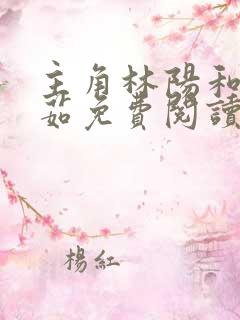 主角林陽和
茹免費閱讀
楊紅